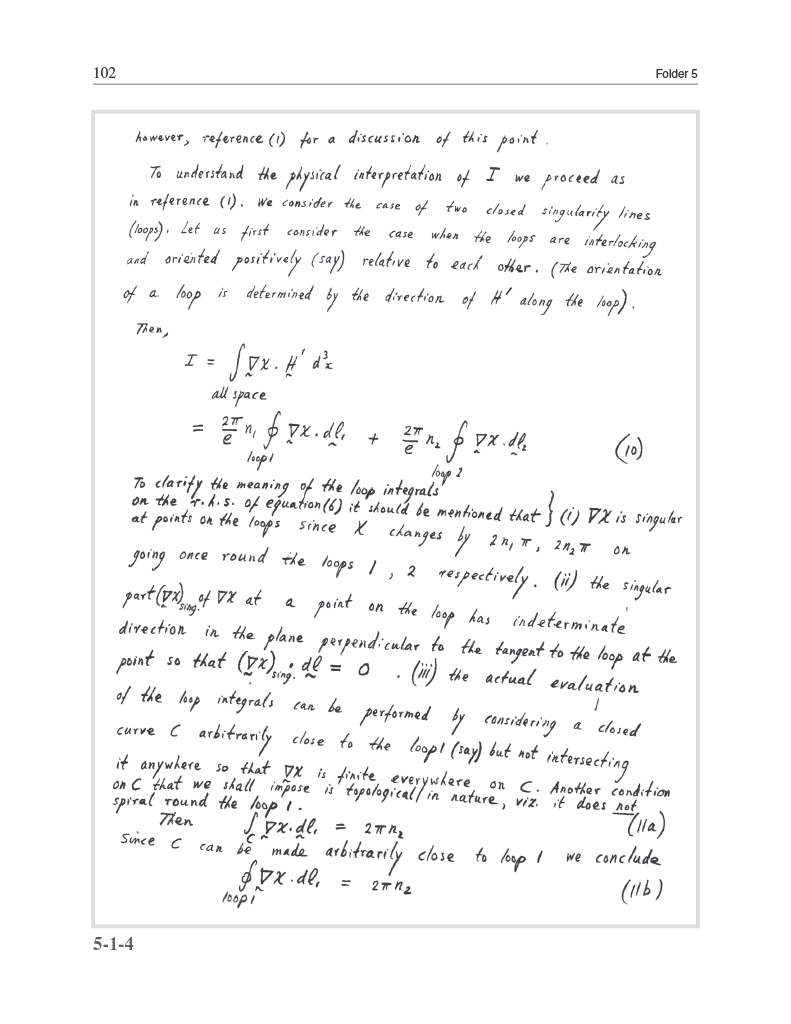 102
Folder 5
however, reference (1) for a discussion of this point.
To understand the physical interpretation of I we proceed as
in reference (1). We consider the case of two closed singularity lines
(loops). Let us first consider the case when the loops are interlocking
and oriented positively (say) relative to each other. (The orientation
of a loop is determined by the direction of H' along the loop).
Then,
I = ∫ ∇χ . H' d³x
all space
= 2π/e n₁ ∮ ∇χ . dl₁ + 2π/e n₂ ∮ ∇χ . dl₂ (10)
loop 1 loop 2
To clarify the meaning of the loop integrals
on the r.h.s. of equation (6) it should be mentioned that } (i) ∇χ is singular
at points on the loops since χ changes by 2n₁π, 2n₂π on
going once round the loops 1, 2 respectively. (ii) the singular
part (∇χ)sing. of ∇χ at a point on the loop has indeterminate
direction in the plane perpendicular to the tangent to the loop at the
point so that (∇χ)sing. . dl = 0 . (iii) the actual evaluation
of the loop integrals can be performed by considering a closed
curve C arbitrarily close to the loop 1 (say) but not intersecting
it anywhere so that ∇χ is finite everywhere on C. Another condition
on C that we shall impose is topological in nature, viz. it does not
spiral round the loop 1.
Then ∫C ∇χ . dl₁ = 2πn₂ (11a)
Since C can be made arbitrarily close to loop 1 we conclude
∮ ∇χ . dl₁ = 2πn₂ (11b)
loop 1
5-1-4